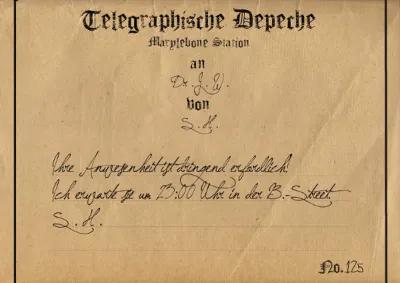 Telegraphische Depeche
Marylebone Station
an
Dr. J. W.
von
S. H.
Ihre Anwesenheit ist dringend erfordlich!
Ich erwarte sie um 23:00 Uhr in der B.-Street.
S. H.
No. 125